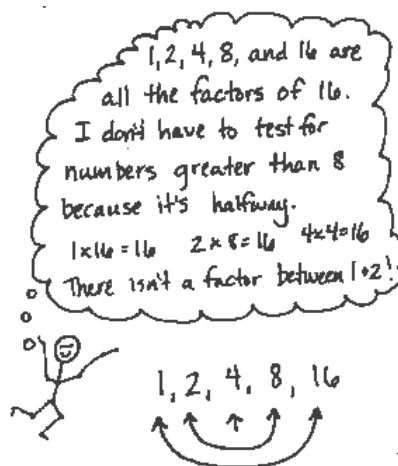 1, 2, 4, 8, and 16 are
all the factors of 16.
I don't have to test for
numbers greater than 8
because it's halfway.
1x16=16 2x8=16 4x4=16
There isn't a factor between 1+2!
1, 2, 4, 8, 16